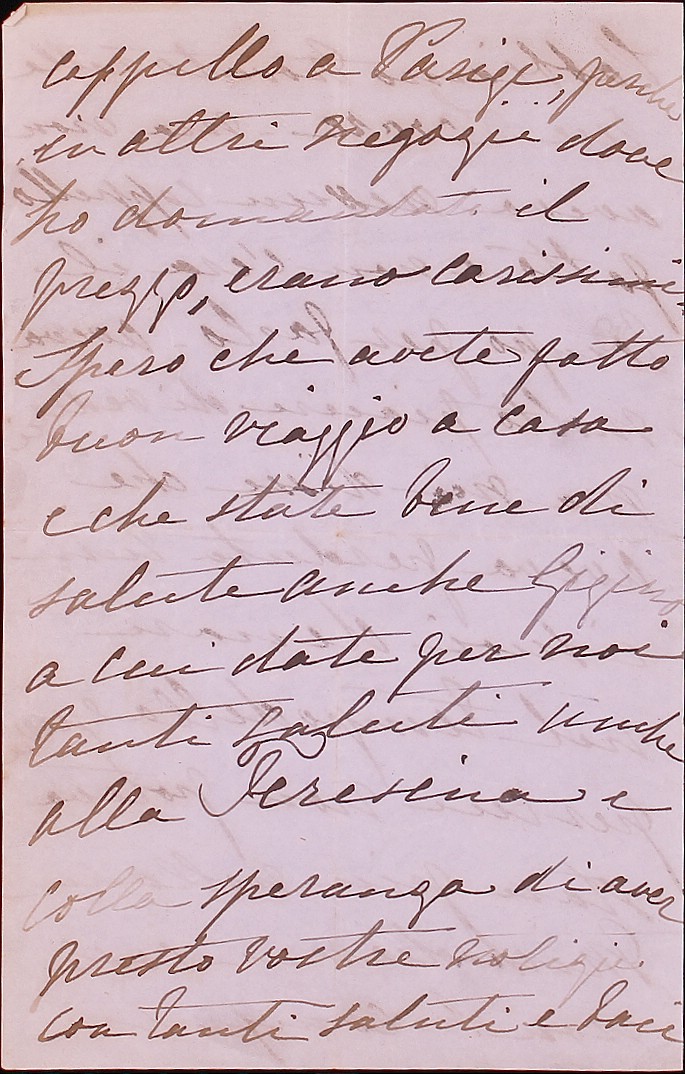 cappello a Parigi, perche
in altri negozii dove
ho domandato il
prezzo, erano carissimi.
Spero che avete fatto
buon viaggio a casa
e che state bene di
salute anche Gigino
a cui date per noi
tanti saluti anche
alla Teresina e
colla speranza di aver
presto vostre notizie
con tanti saluti e baci